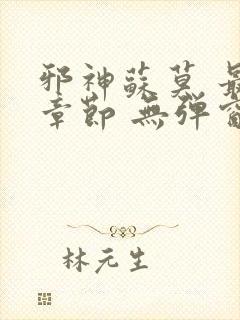 邪神蘇莫 最
章節 無彈窗
林元生